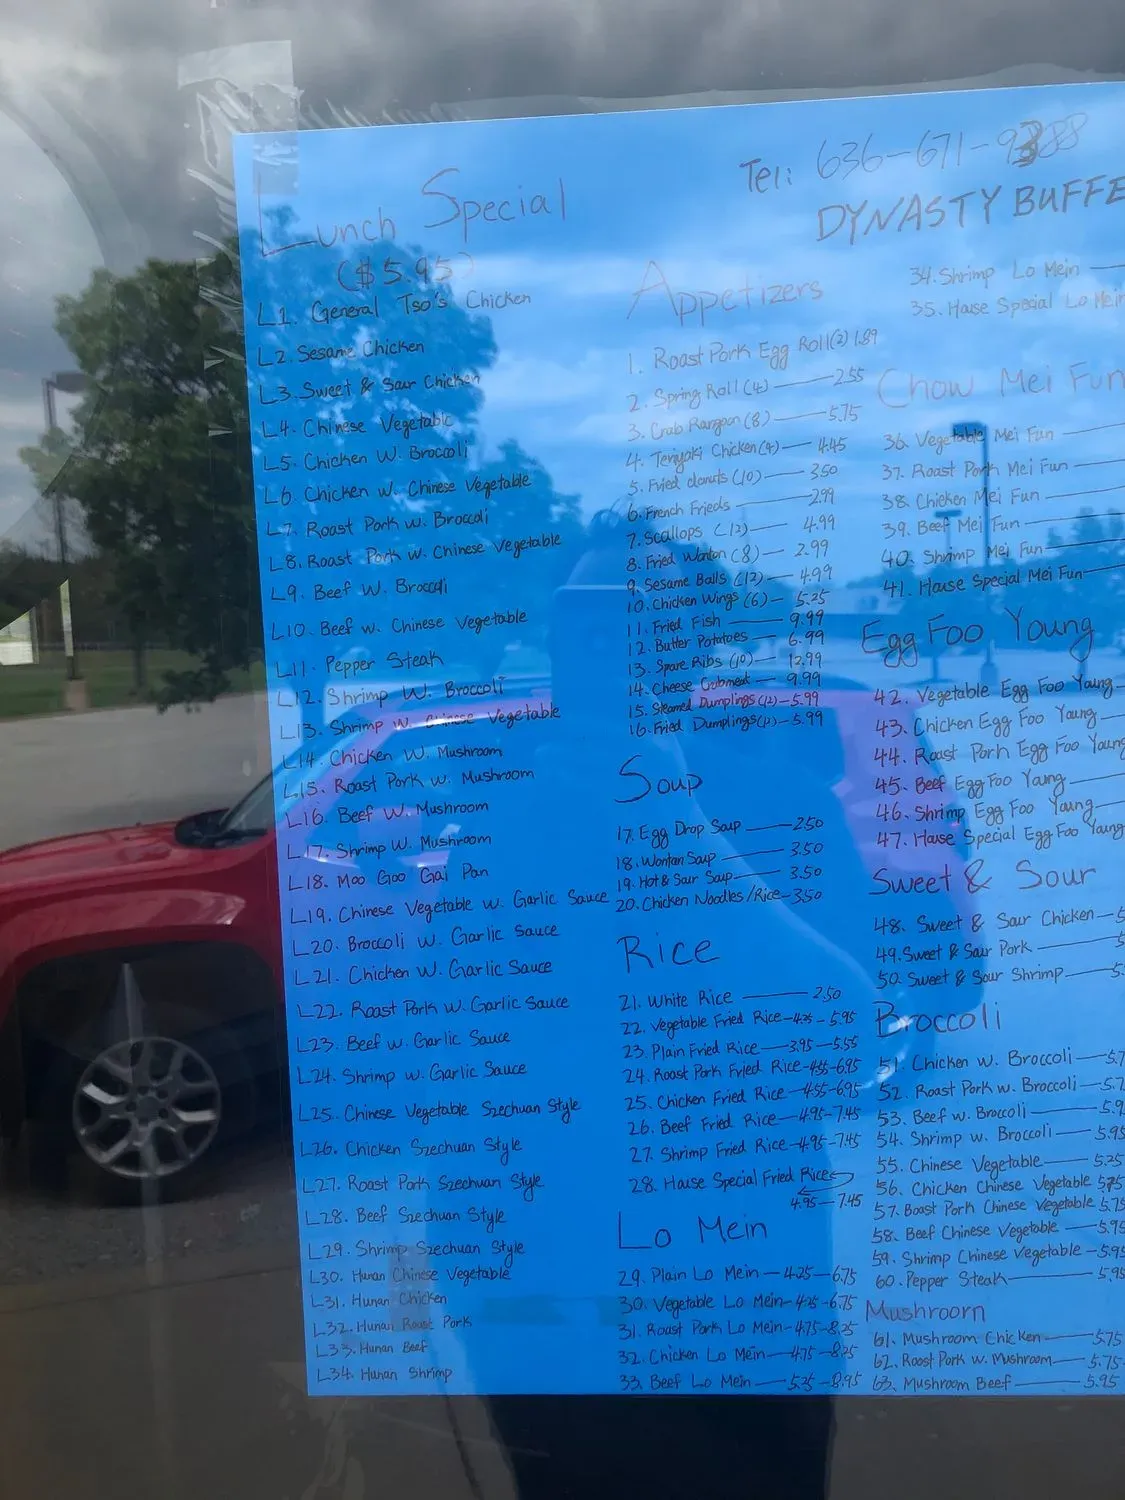 Tel: 636-671-9388
DYNASTY BUFFE
Lunch Special
($5.95)
L1. General Tso's Chicken
L2. Sesame Chicken
L3. Sweet & Sour Chicken
L4. Chinese Vegetable
L5. Chicken W. Broccoli
L6. Chicken w. Chinese Vegetable
L7. Roast Pork w. Broccoli
L8. Roast Pork w. Chinese Vegetable
L9. Beef W. Broccoli
L10. Beef w. Chinese Vegetable
L11. Pepper Steak
L12. Shrimp W. Broccoli
L13. Shrimp w. Chinese Vegetable
L14. Chicken W. Mushroom
L15. Roast Pork w. Mushroom
L16. Beef W. Mushroom
L17. Shrimp W. Mushroom
L18. Moo Goo Gai Pan
L19. Chinese Vegetable w. Garlic Sauce
L20. Broccoli w. Garlic Sauce
L21. Chicken W. Garlic Sauce
L22. Roast Pork w. Garlic Sauce
L23. Beef w. Garlic Sauce
L24. Shrimp w. Garlic Sauce
L25. Chinese Vegetable Szechuan Style
L26. Chicken Szechuan Style
L27. Roast Pork Szechuan Style
L28. Beef Szechuan Style
L29. Shrimp Szechuan Style
L30. Hunan Chinese Vegetable
L31. Hunan Chicken
L32. Hunan Roast Pork
L33. Hunan Beef
L34. Hunan Shrimp
Appetizers
1. Roast Pork Egg Roll(2) 1.89
2. Spring Roll (4) 2.55
3. Crab Rangoon (8) 5.75
4. Teriyaki Chicken(4) 4.45
5. Fried donuts (10) 3.50
6. French Frieds 2.99
7. Scallops (12) 4.99
8. Fried Wonton (8) 2.99
9. Sesame Balls (12) 4.99
10. Chicken Wings (6) 5.25
11. Fried Fish 9.99
12. Butter Potatoes 6.99
13. Spare Ribs (10) 12.99
14. Cheese Crabmeat 9.99
15. Steamed Dumplings(12) 5.99
16. Fried Dumplings(12) 5.99
Soup
17. Egg Drop Soup 2.50
18. Wonton Soup 3.50
19. Hot & Sour Soup 3.50
20. Chicken Noodles/Rice 3.50
Rice
21. White Rice 2.50
22. Vegetable Fried Rice 4.25-5.95
23. Plain Fried Rice 3.95-5.55
24. Roast Pork Fried Rice 4.55-6.95
25. Chicken Fried Rice 4.55-6.95
26. Beef Fried Rice 4.95-7.45
27. Shrimp Fried Rice 4.95-7.45
28. House Special Fried Rice
4.95-7.45
Lo Mein
29. Plain Lo Mein 4.25-6.75
30. Vegetable Lo Mein 4.25-6.75
31. Roast Pork Lo Mein 4.75-8.25
32. Chicken Lo Mein 4.75-8.25
33. Beef Lo Mein 5.25-8.95
34. Shrimp Lo Mein
35. House Special Lo Mein
Chow Mei Fun
36. Vegetable Mei Fun
37. Roast Pork Mei Fun
38. Chicken Mei Fun
39. Beef Mei Fun
40. Shrimp Mei Fun
41. House Special Mei Fun
Egg Foo Young
42. Vegetable Egg Foo Young
43. Chicken Egg Foo Young
44. Roast Pork Egg Foo Young
45. Beef Egg Foo Young
46. Shrimp Egg Foo Young
47. House Special Egg Foo Young
Sweet & Sour
48. Sweet & Sour Chicken 5
49. Sweet & Sour Pork 5
50. Sweet & Sour Shrimp 5.
Broccoli
51. Chicken w. Broccoli 5.7
52. Roast Pork w. Broccoli 5.7
53. Beef w. Broccoli 5.9
54. Shrimp w. Broccoli 5.95
55. Chinese Vegetable 5.25
56. Chicken Chinese Vegetable 5.75
57. Roast Pork Chinese Vegetable 5.75
58. Beef Chinese Vegetable 5.95
59. Shrimp Chinese Vegetable 5.95
60. Pepper Steak 5.95
Mushroom
61. Mushroom Chicken 5.75
62. Roast Pork w. Mushroom 5.75
63. Mushroom Beef 5.95